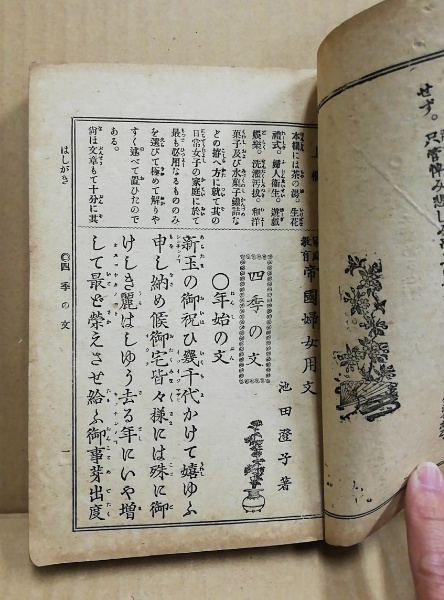 せず。
家庭教育 帝國婦女用文
池田澄子著
四季の文
〇年始の文
新玉の御祝ひ幾千代かけて嬉ゆふ
申し納め候御宅皆々様には殊に御
けしき麗はしゆう去る年にいや増
して最ど榮えさせ給ふ御事芽出度
本欄には茶の湯。生花
禮式。婦人衛生。遊戯
娯樂。洗濯汚拔。和洋
菓子及び氷菓子鑵詰な
どの拵へ方に就て其の
日常女子の家庭に於て
最も必用なるもののみ
を選びて極めて解りや
すく述べて置ひたので
ある。
尚ほ文章もて十分に其
はしがき
◎四季の文
一